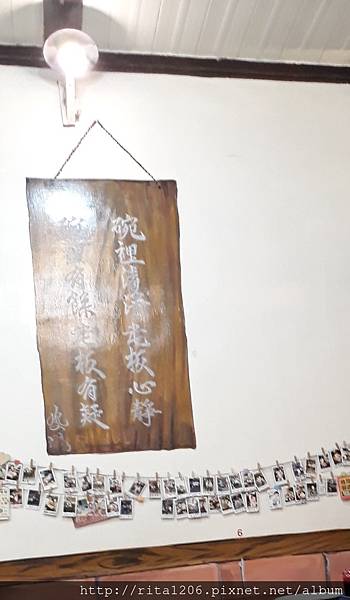 碗裡清潔老板心靜
碗裡有餘老板有疑
6
http://rita1206.pixnet.net/album